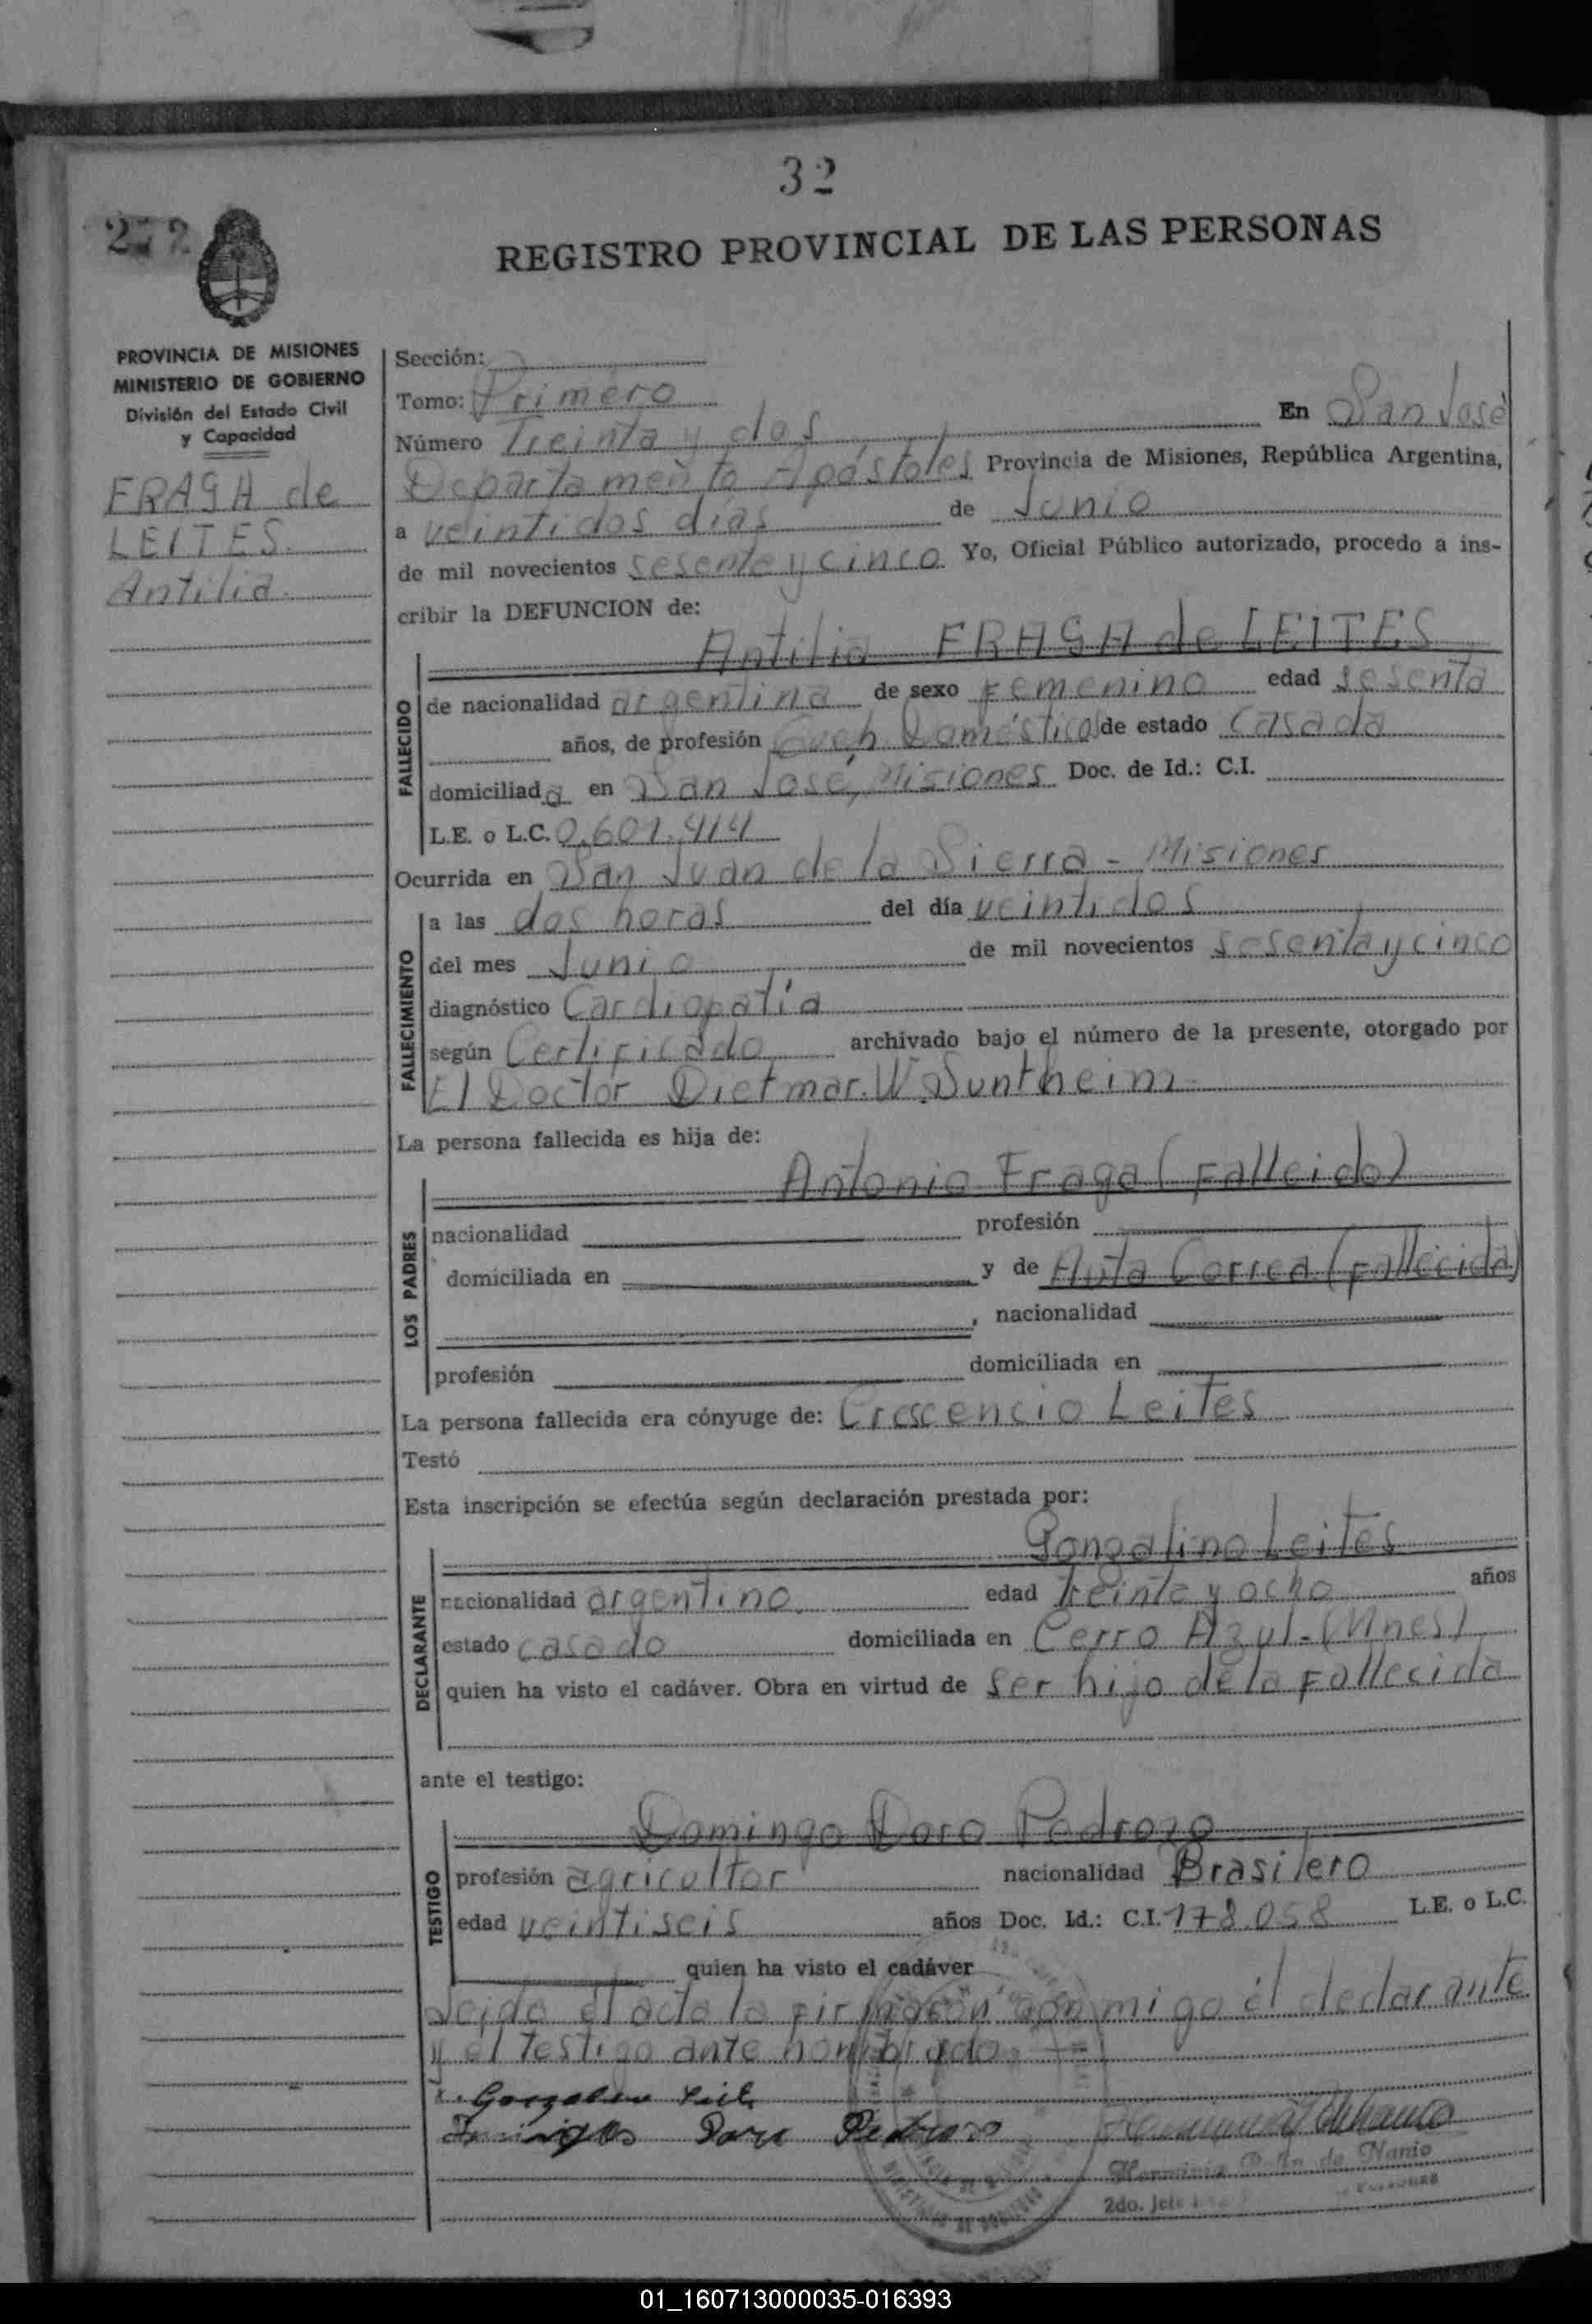 32
272
REGISTRO PROVINCIAL DE LAS PERSONAS
PROVINCIA DE MISIONES
MINISTERIO DE GOBIERNO
División del Estado Civil
y Capacidad
FRAGA de
LEITES.
Antilia.
Sección:
Tomo: Primero
Número Treinta y dos En San José
Departamento Apóstoles Provincia de Misiones, República Argentina,
a veintidos días de Junio
de mil novecientos sesenta y cinco Yo, Oficial Público autorizado, procedo a ins-
cribir la DEFUNCION de:
Antilia FRAGA de LEITES
FALLECIDO
de nacionalidad argentina de sexo Femenino edad sesenta
años, de profesión Queh. Domésticos de estado Casada
domiciliada en San José, Misiones Doc. de Id.: C.I.
L.E. o L.C. 0.601.414
Ocurrida en San Juan de la Sierra - Misiones
FALLECIMIENTO
a las dos horas del día veintidos
del mes Junio de mil novecientos sesenta y cinco
diagnóstico Cardiopatía
según Certificado archivado bajo el número de la presente, otorgado por
El Doctor Dietmar. W. Suntheim
La persona fallecida es hija de:
Antonio Fraga (Falleido)
LOS PADRES
nacionalidad profesión
domiciliada en y de Correa (fallecida)
, nacionalidad
profesión domiciliada en
La persona fallecida era cónyuge de: Crescencio Leites
Testó
Esta inscripción se efectúa según declaración prestada por:
Gonzalino Leites
DECLARANTE
nacionalidad argentino edad treinta y ocho años
estado casado domiciliada en Cerro Azul-(Mnes)
quien ha visto el cadáver. Obra en virtud de ser hijo de la Fallecida
ante el testigo:
Domingo Doro Pedrozo
TESTIGO
profesión agricultor nacionalidad Brasilero
edad veintiseis años Doc. Id.: C.I. 178.058 L.E. o L.C.
quien ha visto el cadáver
Leida el acta la firmaron conmigo el declarante
y el testigo ante nombrado.
Domingo Doro Pedrozo
Herminia de Nanio
2do. Jefe
01_160713000035-016393